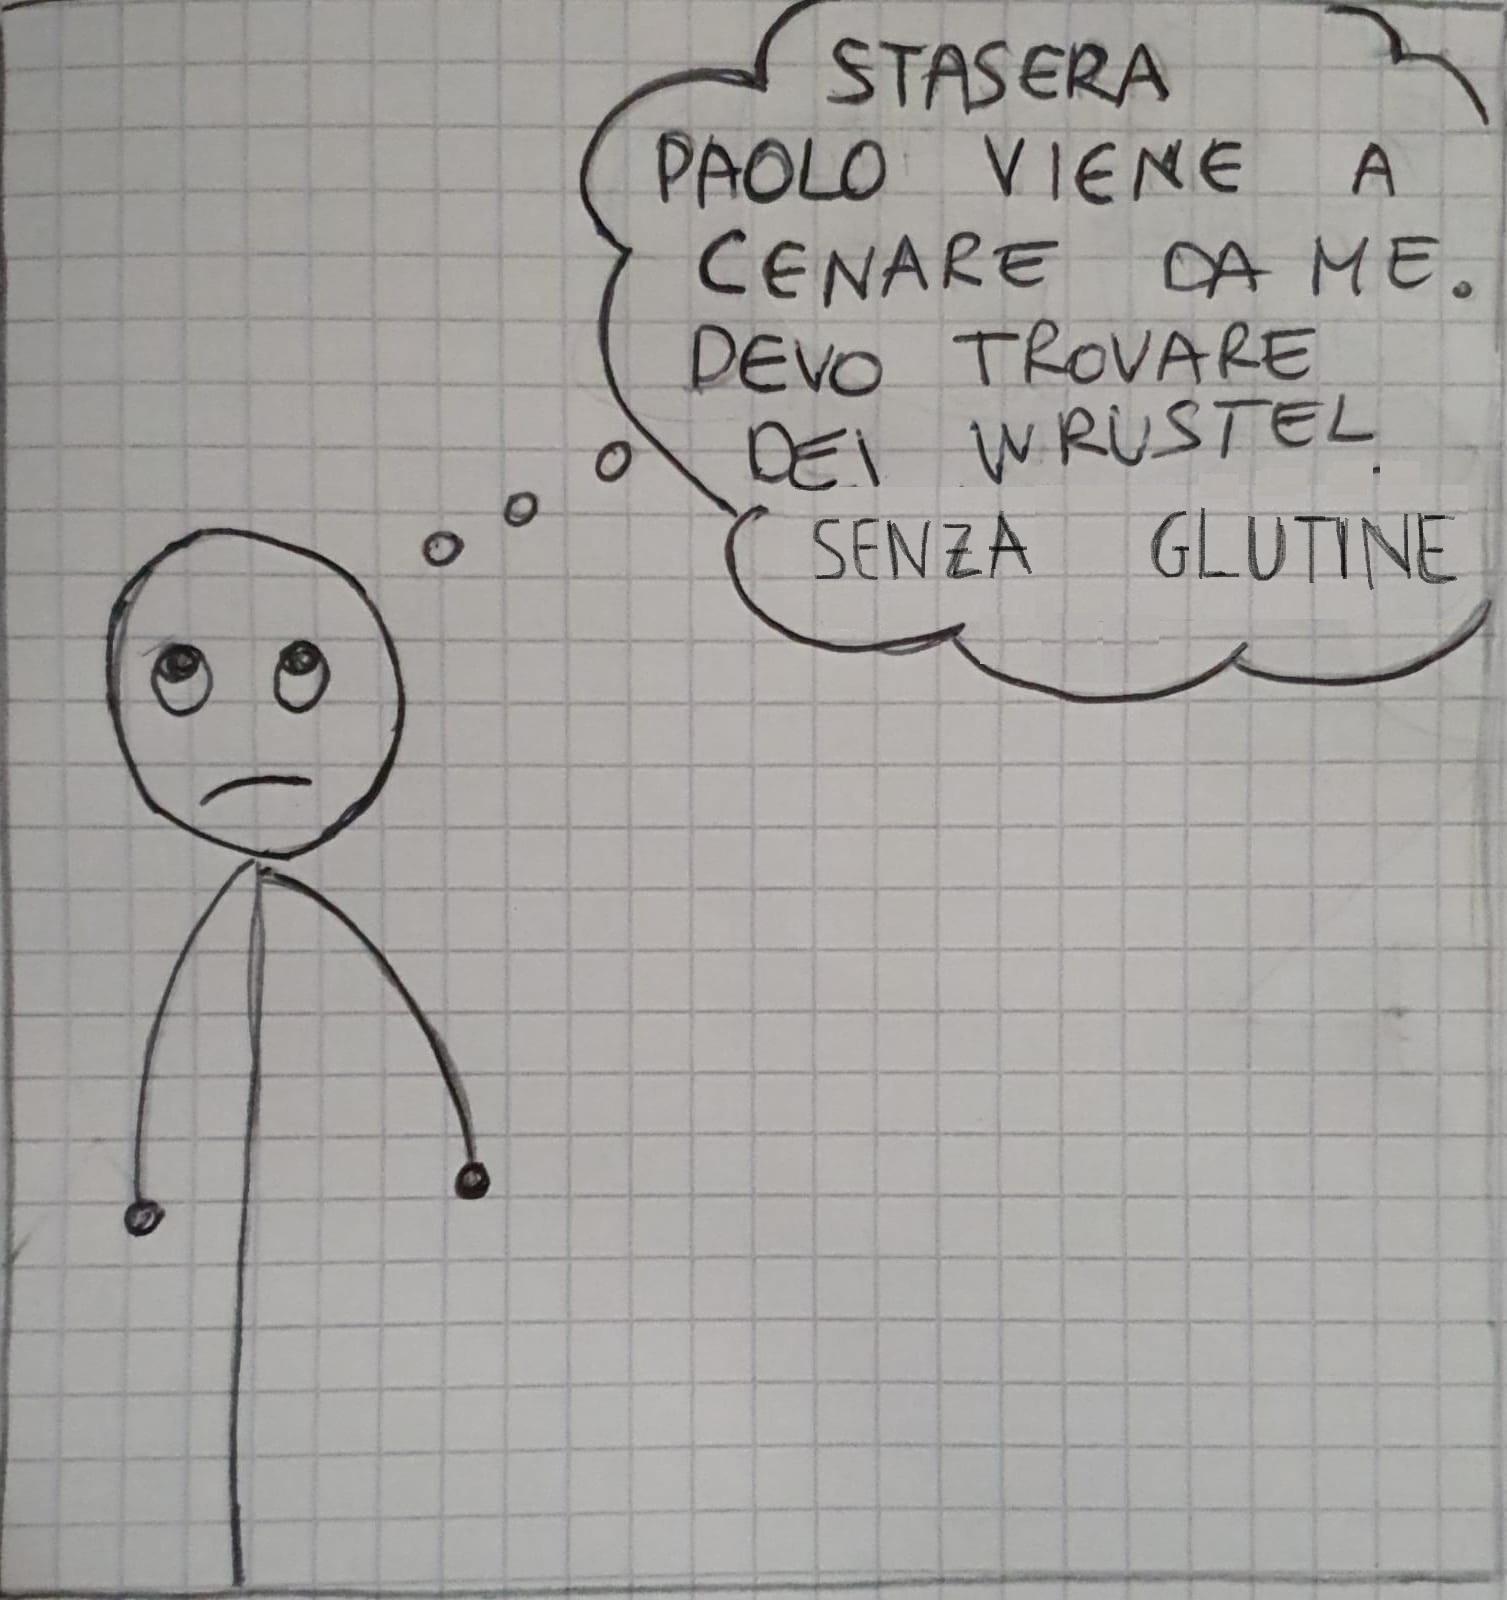 STASERA
PAOLO VIENE A
CENARE DA ME.
DEVO TROVARE
DEI WRUSTEL
SENZA GLUTINE